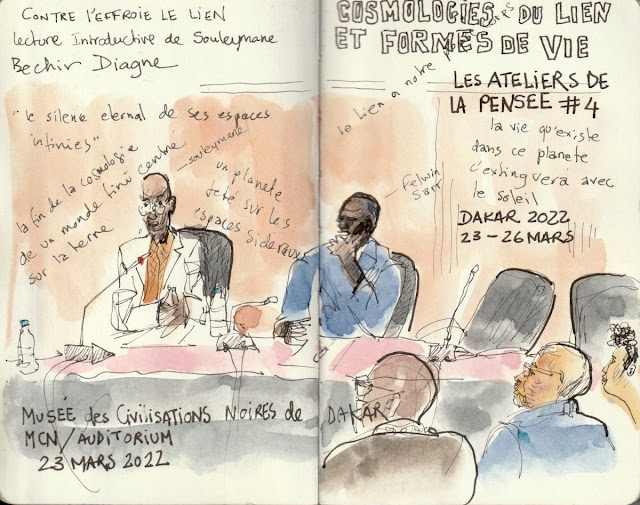 CONTRE L'EFFROIE LE LIEN
lecture Introductive de Souleymane
Bechir Diagne
"le silence eternal de ses espaces
infinies"
la fin de la cosmologie
de un monde fini centré
sur la terre
souleymane
un planete
jeté sur les
espaces sideraux
COSMOLOGIES DU LIEN
ET FORMES DE VIE
le lien a notre
LES ATELIERS DE
LA PENSEE #4
la vie qu'existe
dans ce planete
s'extinguera avec
le soleil
DAKAR 2022
23-26 MARS
Felwin
Sarr
MUSÉE des CIVILISATIONS NOIRES de DAKAR
MCN/AUDITORIUM
23 MARS 2022